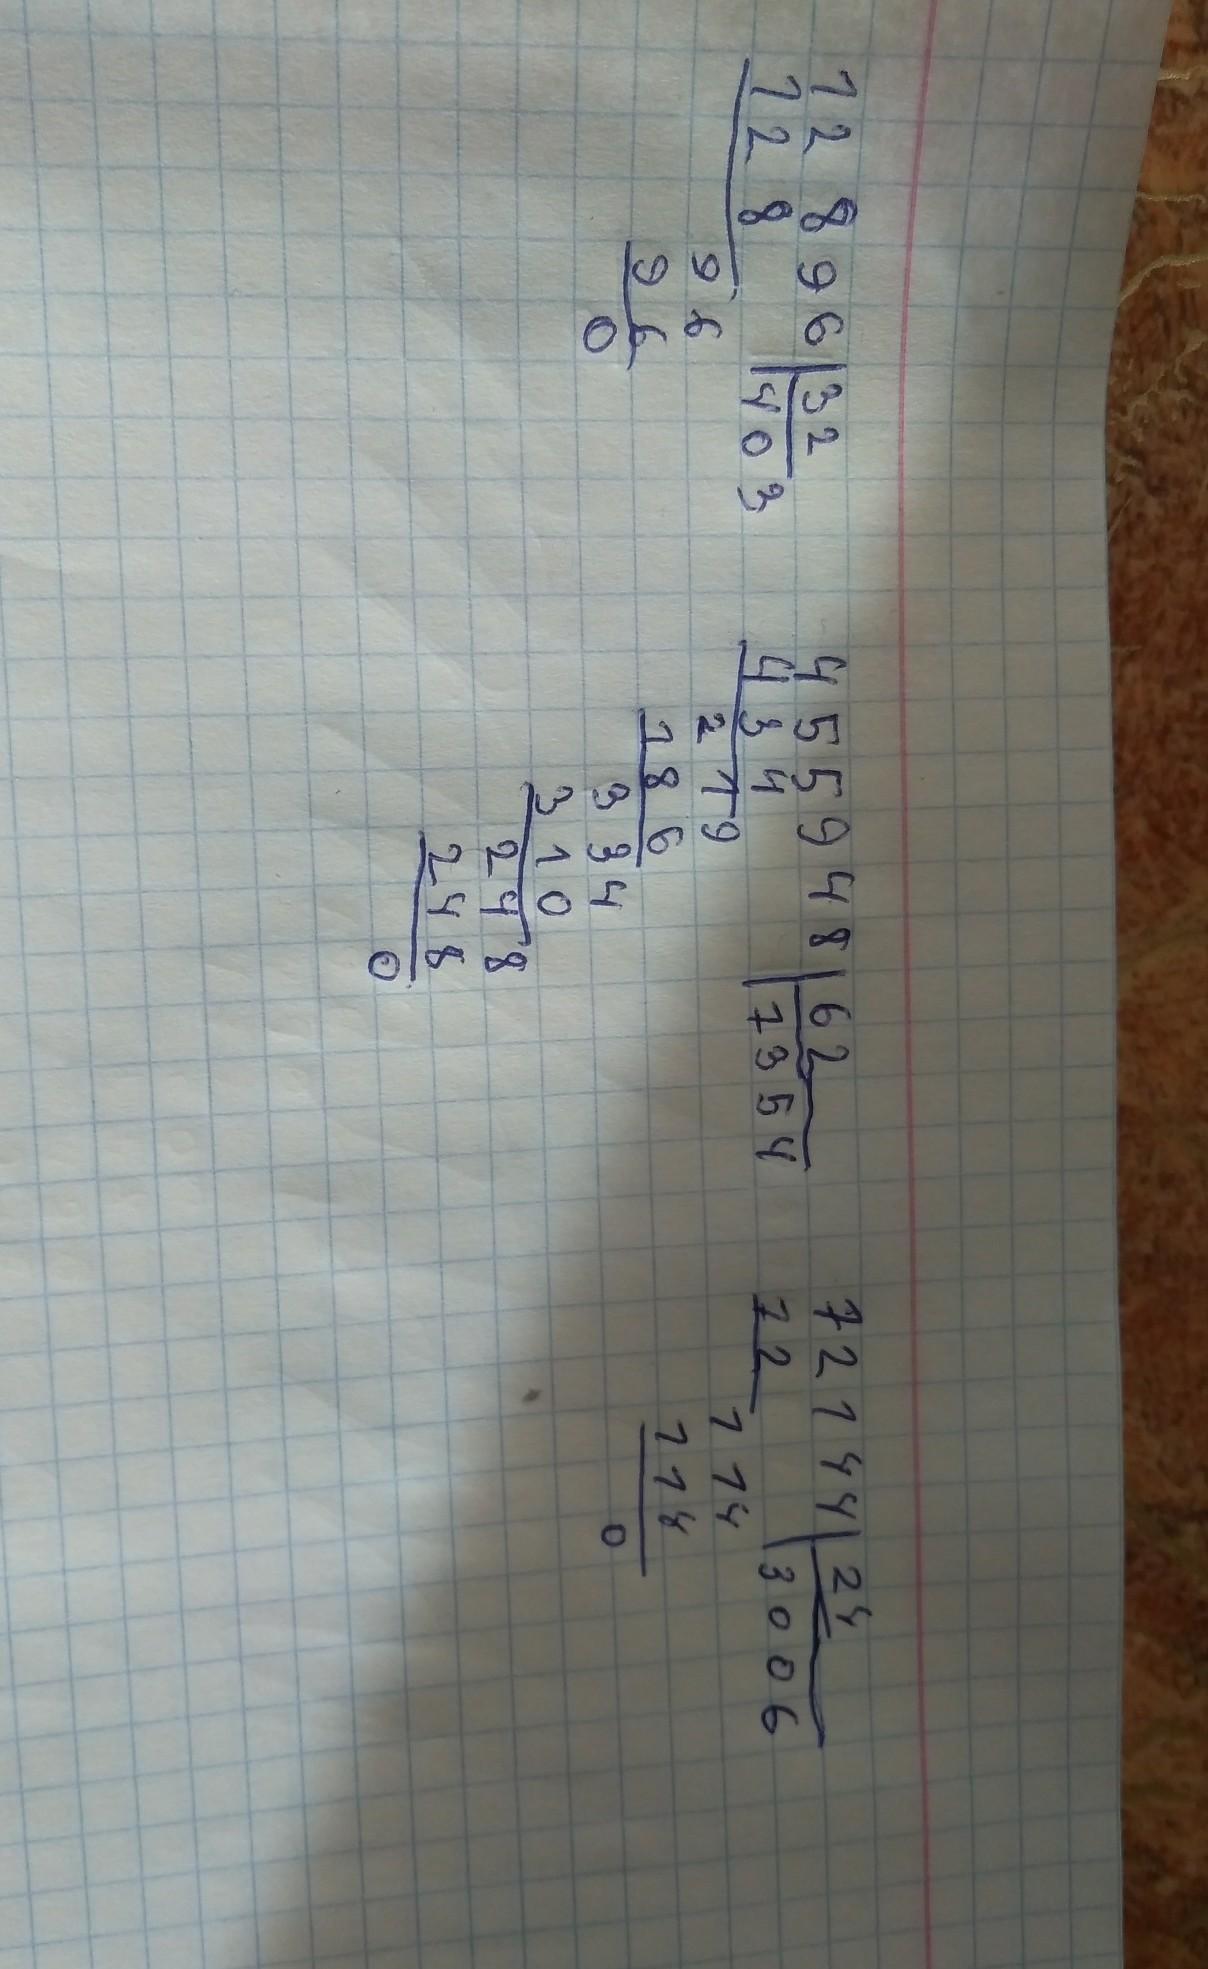 12896 32
128 403
96
96
0
455948 62
434 7354
219
186
334
310
248
248
0
72144 24
72 3006
114
114
0